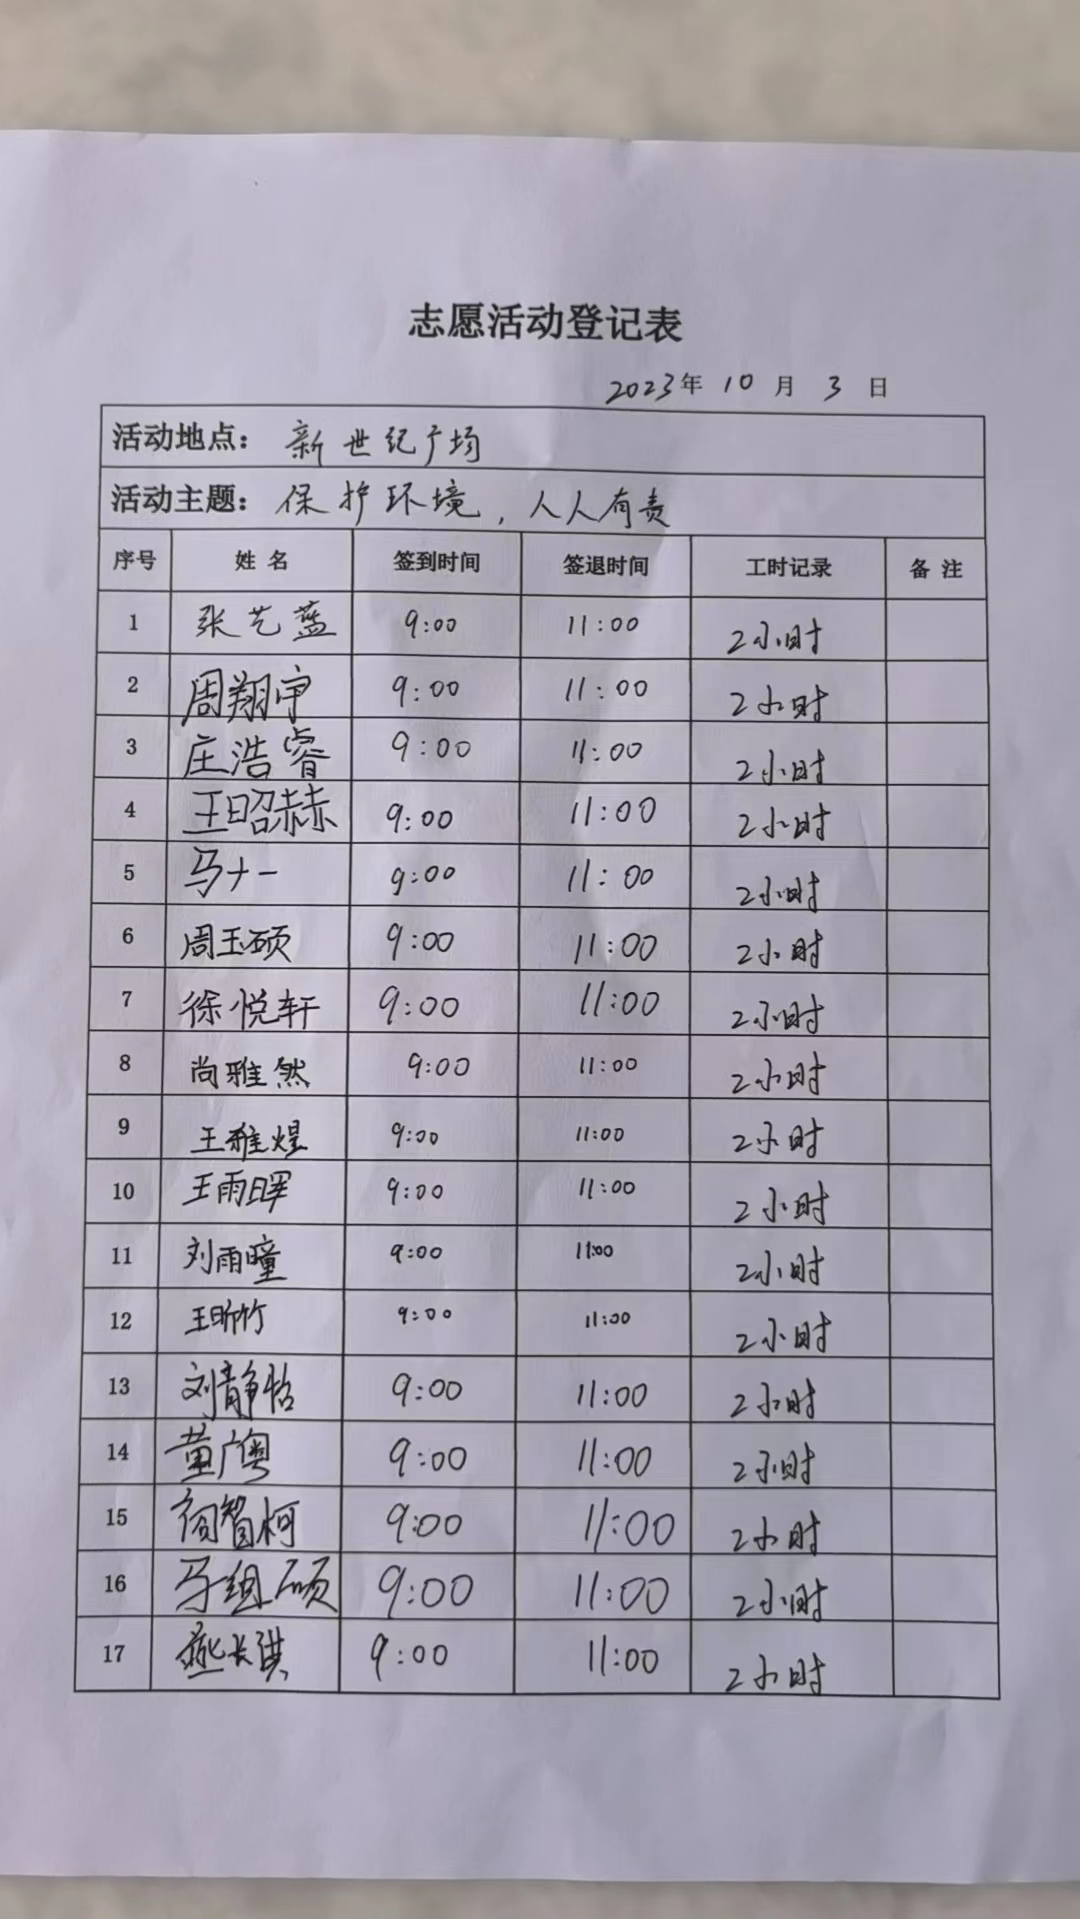 志愿活动登记表
2023年 10 月 3 日
活动地点： 新世纪广场
活动主题： 保护环境，人人有责
序号 姓名 签到时间 签退时间 工时记录 备注
1 张艺蓝 9:00 11:00 2小时
2 周翔宇 9:00 11:00 2小时
3 庄浩睿 9:00 11:00 2小时
4 王昭赫 9:00 11:00 2小时
5 马十一 9:00 11:00 2小时
6 周玉硕 9:00 11:00 2小时
7 徐悦轩 9:00 11:00 2小时
8 尚雅然 9:00 11:00 2小时
9 王雅煜 9:00 11:00 2小时
10 王雨晖 9:00 11:00 2小时
11 刘雨曈 9:00 11:00 2小时
12 王昕竹 9:00 11:00 2小时
13 刘静怡 9:00 11:00 2小时
14 黄广粤 9:00 11:00 2小时
15 智柯 9:00 11:00 2小时
16 马组硕 9:00 11:00 2小时
17 燕长淇 9:00 11:00 2小时